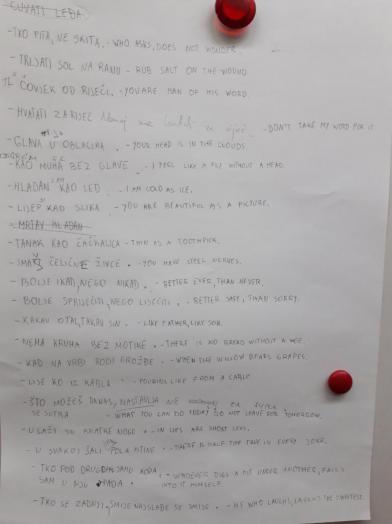 ČUVATI LEĐA
-TKO PITA, NE SKITA. - WHO ASKS, DOES NOT WONDER.
- TRLJATI SOL NA RANU - RUB SALT ON THE WOUND
ČOVJEK OD RIJEČI. - YOU ARE MAN OF HIS WORD.
- HVATATI ZA RIJEČ - DON'T TAKE MY WORD FOR IT
- GLAVA U OBLACIMA - YOUR HEAD IS IN THE CLOUDS.
- KAO MUHA BEZ GLAVE - I FEEL LIKE A FLY WITHOUT A HEAD.
- HLADAN KAO LED - I AM COLD AS ICE.
- LIJEP KAO SLIKA - YOU ARE BEAUTIFUL AS A PICTURE.
- MRTAV HLADAN
- TANAK KAO ČAČKALICA - THIN AS A TOOTHPICK.
- IMAŠ ČELIČNE ŽIVCE. - YOU HAVE STEEL NERVES.
- BOLJE IKAD, NEGO NIKAD. - BETTER EVER, THAN NEVER.
- BOLJE SPRIJEČITI, NEGO LIJEČITI. - BETTER SAFE, THAN SORRY.
- KAKAV OTAC, TAKAV SIN. - LIKE FATHER, LIKE SON.
- NEMA KRUHA BEZ MOTIKE. - THERE IS NO BREAD WITHOUT A HOE.
- KAD NA VRBI RODI GROŽĐE. - WHEN THE WILLOW BEARS GRAPES.
- LIJE KO IZ KABLA - POURING LIKE FROM A CABLE
- ŠTO MOŽEŠ DANAS, NE
ZA SUTRA - WHAT YOU CAN DO TODAY DO NOT LEAVE FOR TOMORROW.
- U LAŽI SU KRATKE NOGE - IN LIES ARE SHORT LEGS.
- U SVAKOJ ŠALI POLA ISTINE. - THERE IS HALF THE TRUE IN EVERY JOKE.
- TKO POD DRUGIM JAMU KOPA, - WHOEVER DIGS A PIT UNDER ANOTHER, FALLS
SAM U NJU PADA. INTO IT HIMSELF.
- TKO SE ZADNJI SMIJE NAJSLAĐE SE SMIJE. - HE WHO LAUGHS, LAUGHS THE SWEETEST.